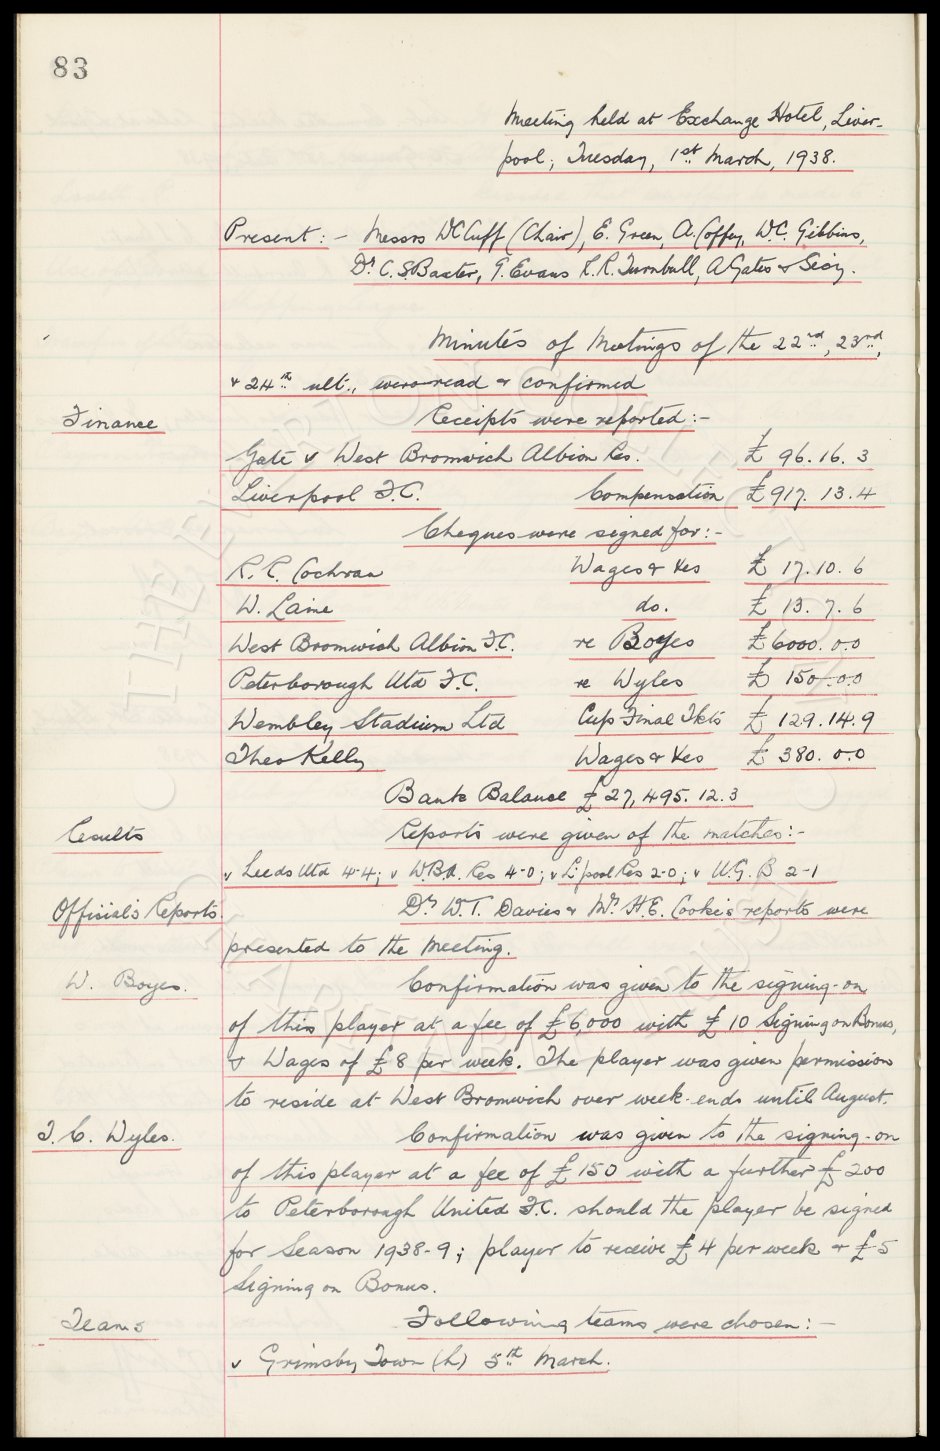 83
Meeting held at Exchange Hotel, Liver-
pool, Tuesday, 1st March, 1938.
Present:- Messrs W C Cuff (Chair), E. Green, A. Coffey, W.C. Gibbins,
Dr C.S. Baxter, T. Evans R.R. Turnbull, A Gates & Secy.
Minutes of Meetings of the 22nd, 23rd,
& 24th ult., were read & confirmed
Finance
Receipts were reported:-
Gate v West Bromwich Albion Res. £ 96. 16. 3
Liverpool F.C. Compensation £ 917. 13. 4
Cheques were signed for:-
R. R. Cochran Wages & Xes £ 17. 10. 6
W. Laine do. £ 13. 7. 6
West Bromwich Albion F.C. re Boyes £ 6000. 0.0
Peterborough Utd F.C. re Wyles £ 150. 0.0
Wembley Stadium Ltd Cup Final Tkts £ 129. 14. 9
Theo Kelly Wages & Xes £ 380. 0.0
Bank Balance £ 27,495. 12. 3
Results
Reports were given of the matches:-
v Leeds Utd 4-4; v W.B.A. Res 4-0; v L'pool Res 2-0; v U.G.B 2-1
Official's Reports.
Dr W.T. Davies & Mr H.E. Cooke's reports were
presented to the Meeting.
W. Boyes.
Confirmation was given to the signing-on
of this player at a fee of £6,000 with £10 Signing on Bonus,
& Wages of £8 per week. The player was given permission
to reside at West Bromwich over week-ends until August.
T. C. Wyles.
Confirmation was given to the signing-on
of this player at a fee of £150 with a further £200
to Peterborough United F.C. should the player be signed
for Season 1938-9; player to receive £4 per week & £5
Signing on Bonus.
Teams
Following teams were chosen:-
v Grimsby Town (h) 5th March.
THE EVERTON COLLECTION
CHARITABLE TRUST